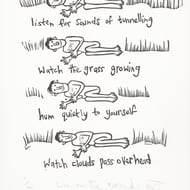 listen for sounds of tunnelling
Watch the grass growing
hum quietly to yourself
Watch clouds pass overhead
Lie on the ground